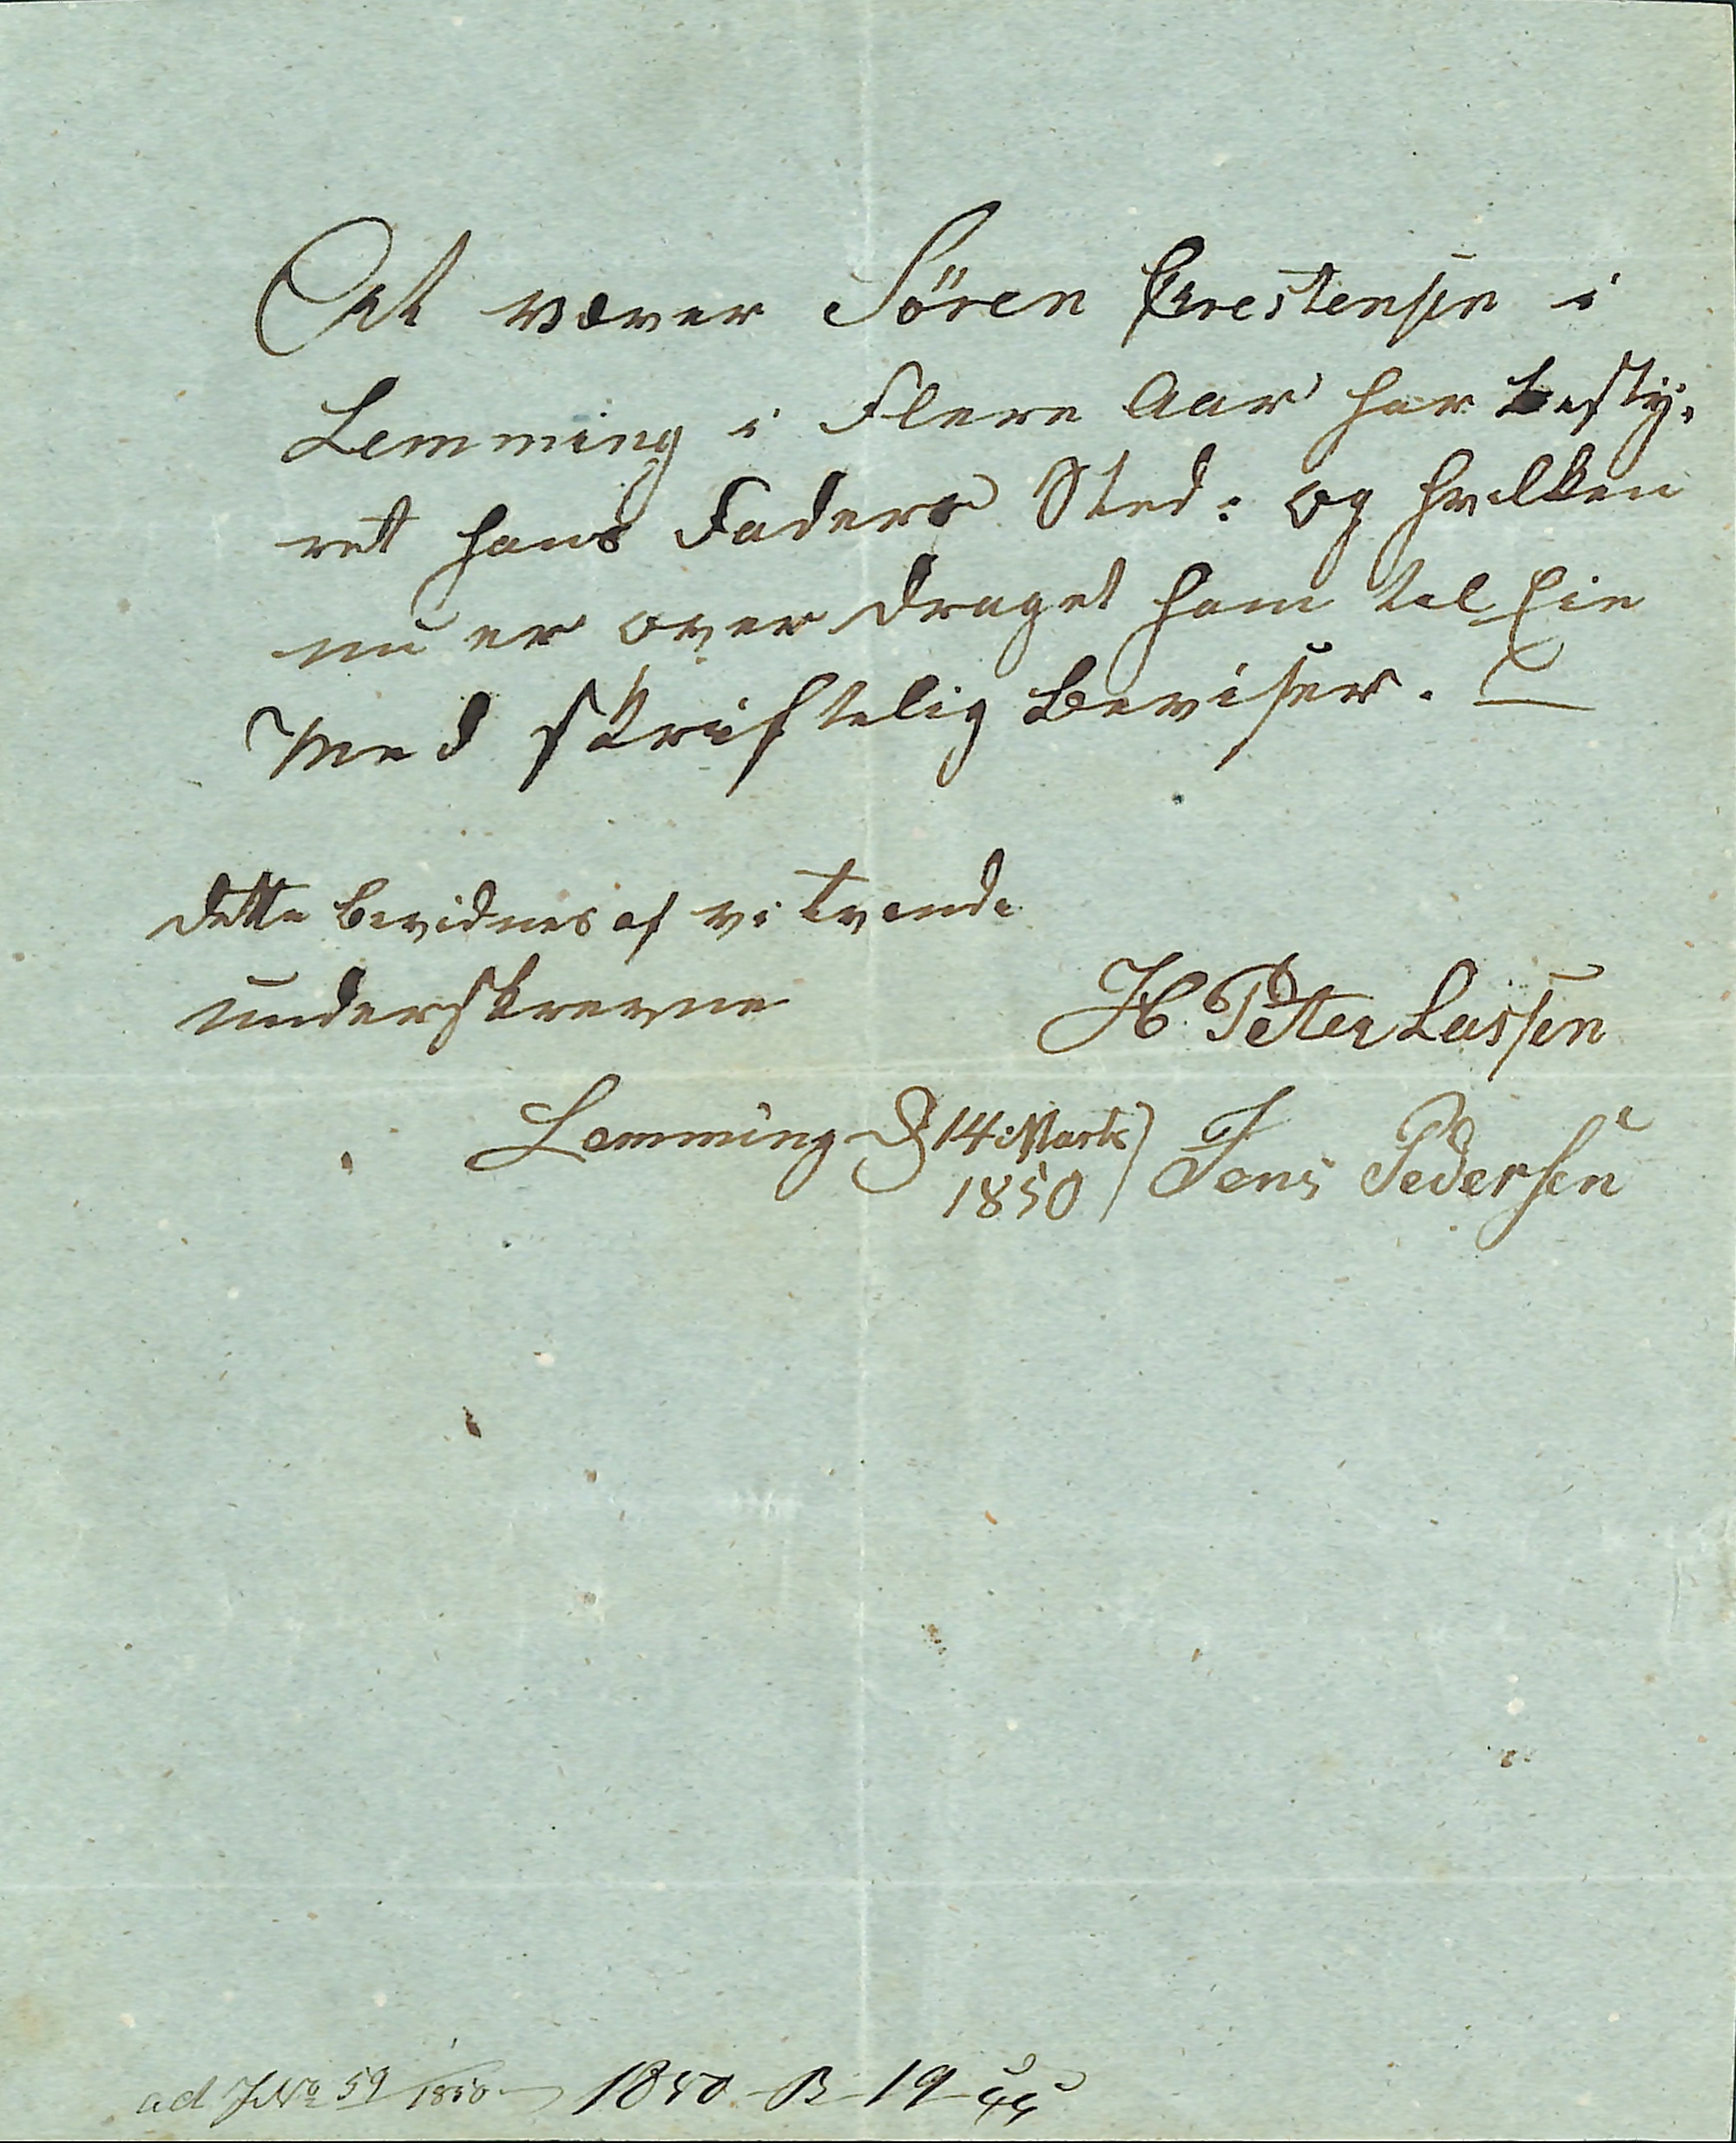 At væver Sören Crestensen i
Lemming i flere Aar har besty-
ret hans Faders Sted: og hvilken
nu er over draget ham til Eie
Med skriftelig Beviser. —
dette bevidnes af vi tvende
underskrevne
H. Peter Lassen
Lemming D 14 Marts
1850
Jens Pedersen
ad JNo 59/1850 1850 - B - 19